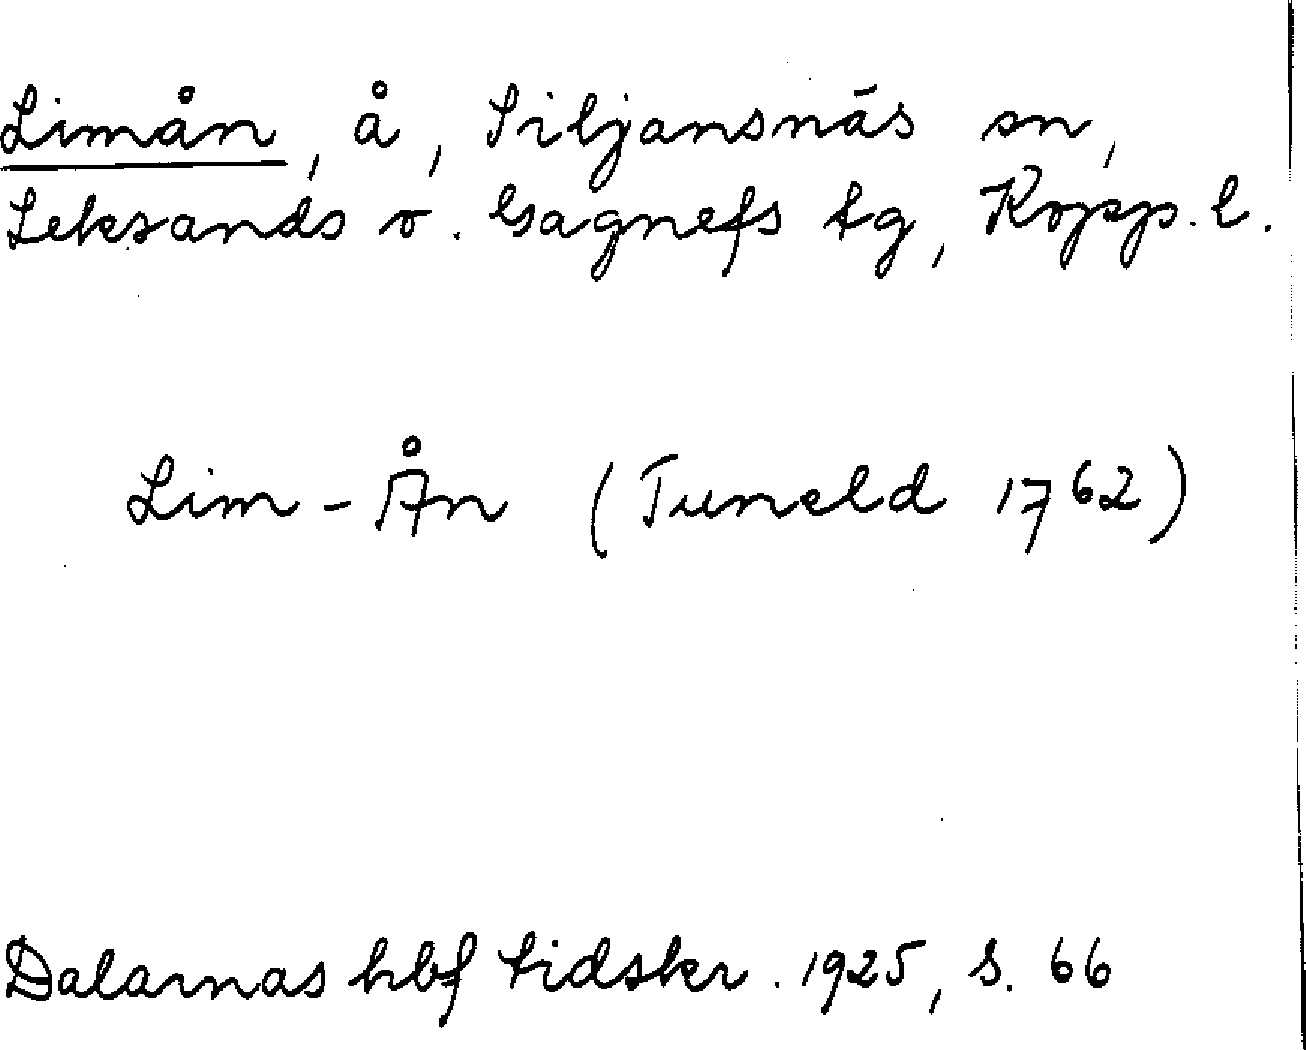 Limån, å, Siljansnäs sn,
Leksands o. Gagnefs tg, Kopp. l.
Lim-Ån (Tuneld 1762)
Dalarnas hbf tidskr. 1925, s. 66